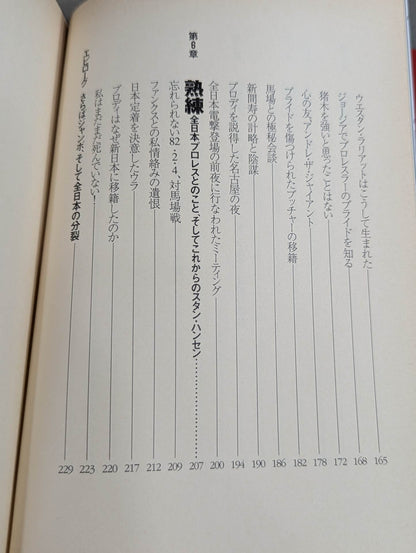 ウエスタン・ラリアットはこうして生まれた……165
ジョージアでプロレスラーのプライドを知る……168
猪木を強いと思ったことはない……172
心の友、アンドレ・ザ・ジャイアント……178
プライドを傷つけられたブッチャーの移籍……182
馬場との極秘会談……186
新間寿の計略と陰謀……190
ブロディを説得した名古屋の夜……194
全日本電撃登場の前夜に行なわれたミーティング……200
第6章 熟練 全日本プロレスとのこと、そしてこれからのスタン・ハンセン……207
忘れられない82・2・4、対馬場戦……209
ファンクスとの私情絡みの遺恨……212
日本定着を決意したウラ……217
ブロディはなぜ新日本に移籍したのか……220
私はまだまだ死んでいない!……223
エピローグ/さらばジャンボ、そして全日本の分裂……229